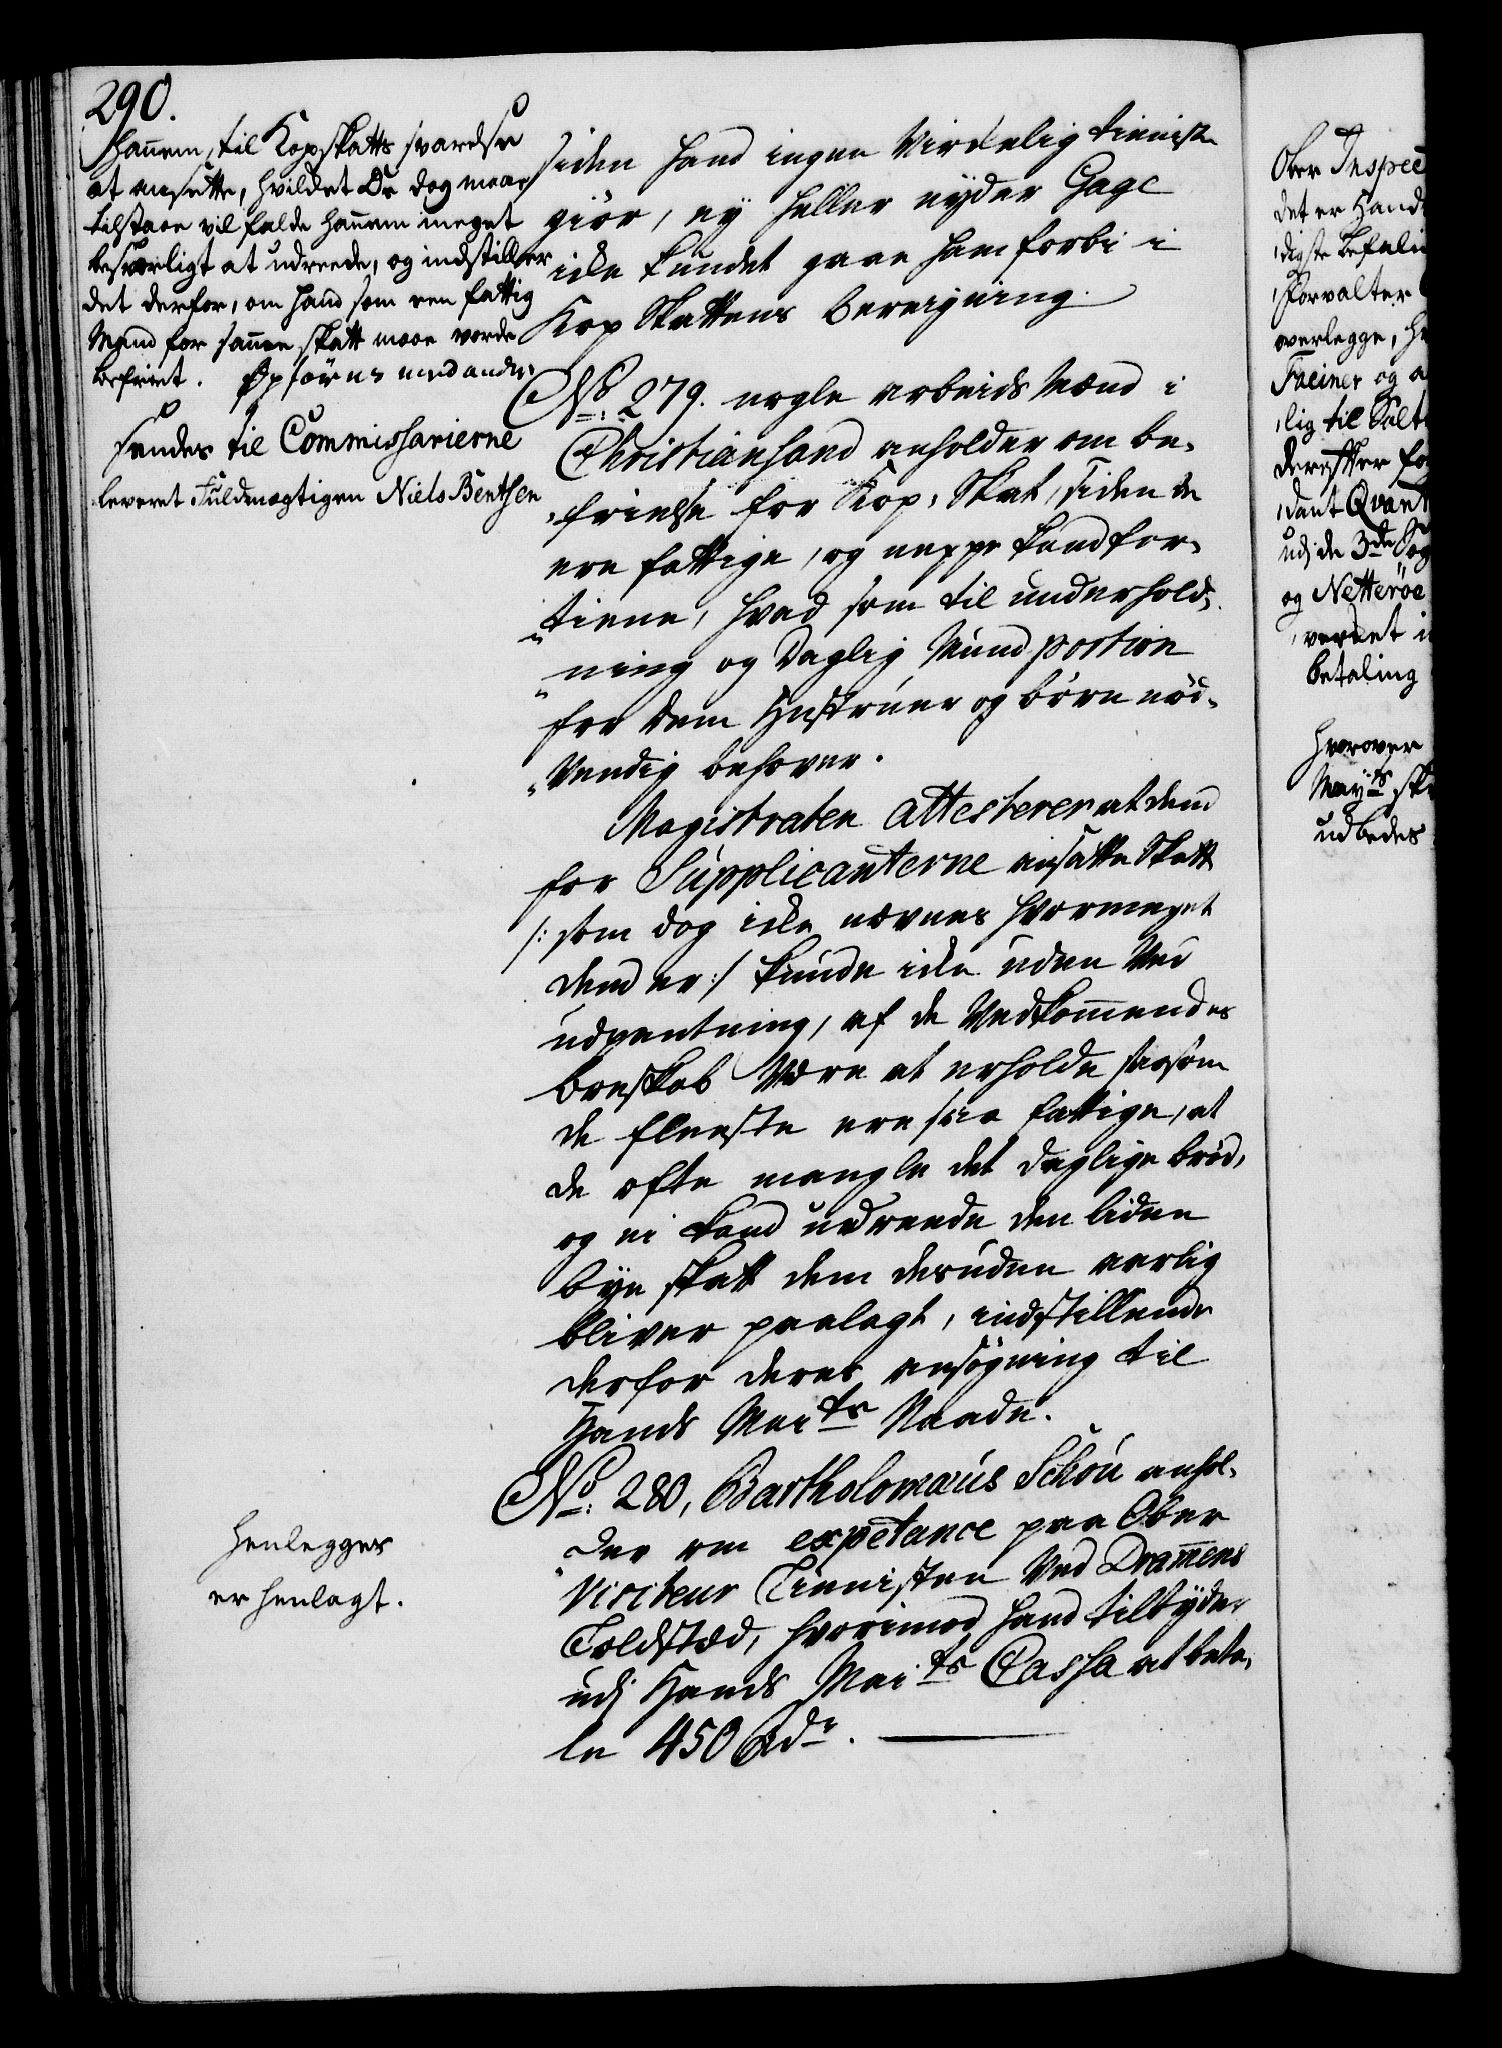 290.
hannem, til Kopskatts svarelse
at ansette, hvilcket De dog maae
tilstaae vil falde hannem meget
besværligt at udreede, og indstiller
det derfor, om hand som een fattig
Mand for samme skatt maae vorde
befriet. Opføres med andre
sendes til Commissarierne
leveret Fuldmægtigen Niels Benthsen
siden hand ingen Virckelig tienniste
giör, ey heller nyder Gage
icke kundet gaae ham forbi i
Kop Skattens bereigning.
No: 279. nogle arbeids Mænd i
Christiansand anholder om be-
frielse for Kop-Skat, siden de
ere fattige, og neppe kand for-
tiene, hvad som til underhold-
ning og Daglig Mund portion
for dem Hustruer og børn nöd-
Vendig behøver.
Magistraten attesterer at dend
for Supplicanterne ansatte Skatt
/: som dog icke nævnes hvormeget
dend er :/ kunde icke uden Ved
udpantning, af de Vedkommendes
boeskab Være at erholde saasom
de fleeste ere saa fattige, at
de ofte mangle det daglige bröd,
og ei kand udreede den liden
bye skatt dem desuden aarlig
bliver paalagt, indstillende
derfor deres ansögning til
Hands Maits Naade.
No: 280, Bartholomæus Schou anhol-
der om expetance paa Ober
Visiteur Tienisten Ved Drammens
Toldsted, hvorimod hand tilbyder
udj Hands Maits Cassa at beta-
le 450 Rdr.
henlegges
er henlagt.
Ober Inspect
det er Hand
digste befali
forvalter
overlegge, h
Faciner og a
lig til Salt
derefter fo
dant Qvant
udj de 3de Sog
og Netteröe
verket i
betaling
hvorover
Mayts sk
udbedes